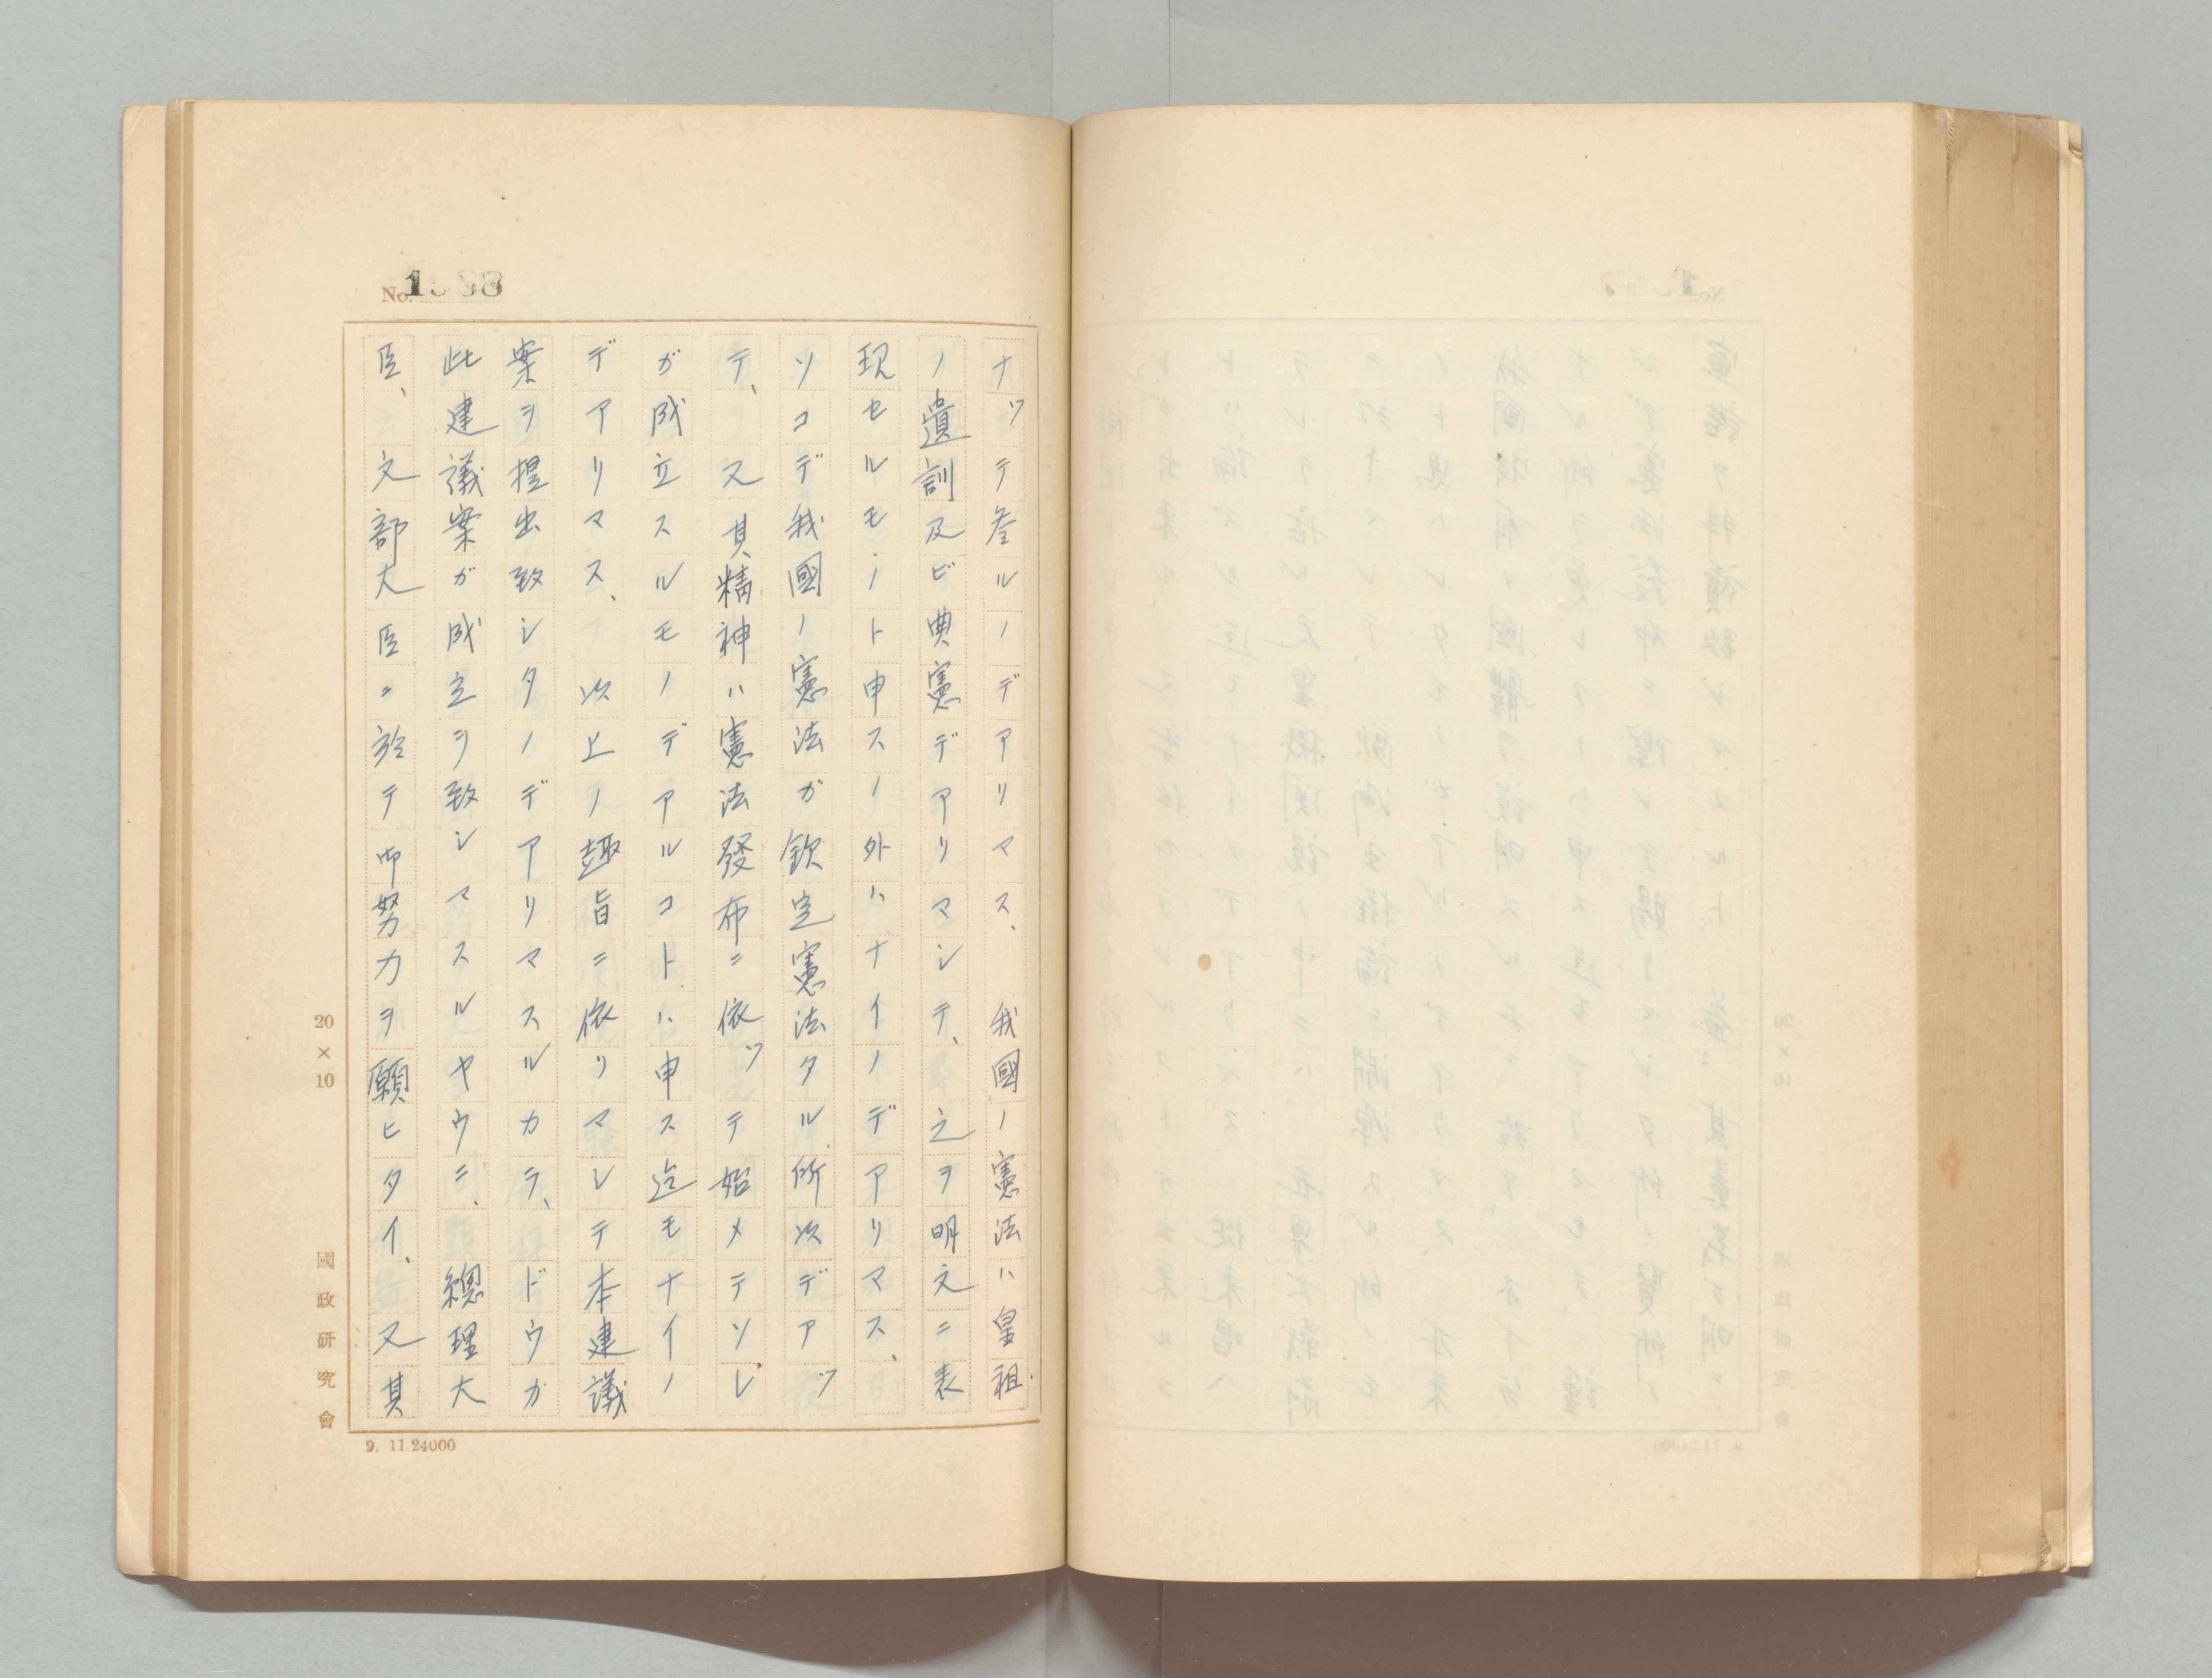 No. 1988
ナッテ參ルノデアリマス、我國ノ憲法ハ皇祖
ノ遺訓及ビ典憲デアリマシテ、之ヲ明文ニ表
現セルモノト申スノ外ハナイノデアリマス、
ソコデ我國ノ憲法ガ欽定憲法タル所以デアッ
テ、又其精神ハ憲法發布ニ依ッテ始メテソレ
ガ成立スルモノデアルコトハ申ス迄モナイノ
デアリマス、以上ノ趣旨ニ依リマシテ本建議
案ヲ提出致シタノデアリマスルカラ、ドウカ
此建議案ガ成立ヲ致シマスルヤウニ、總理大
臣、文部大臣ニ於テ御努力ヲ願ヒタイ、又其
20×10
國政研究會
9. 11.24000